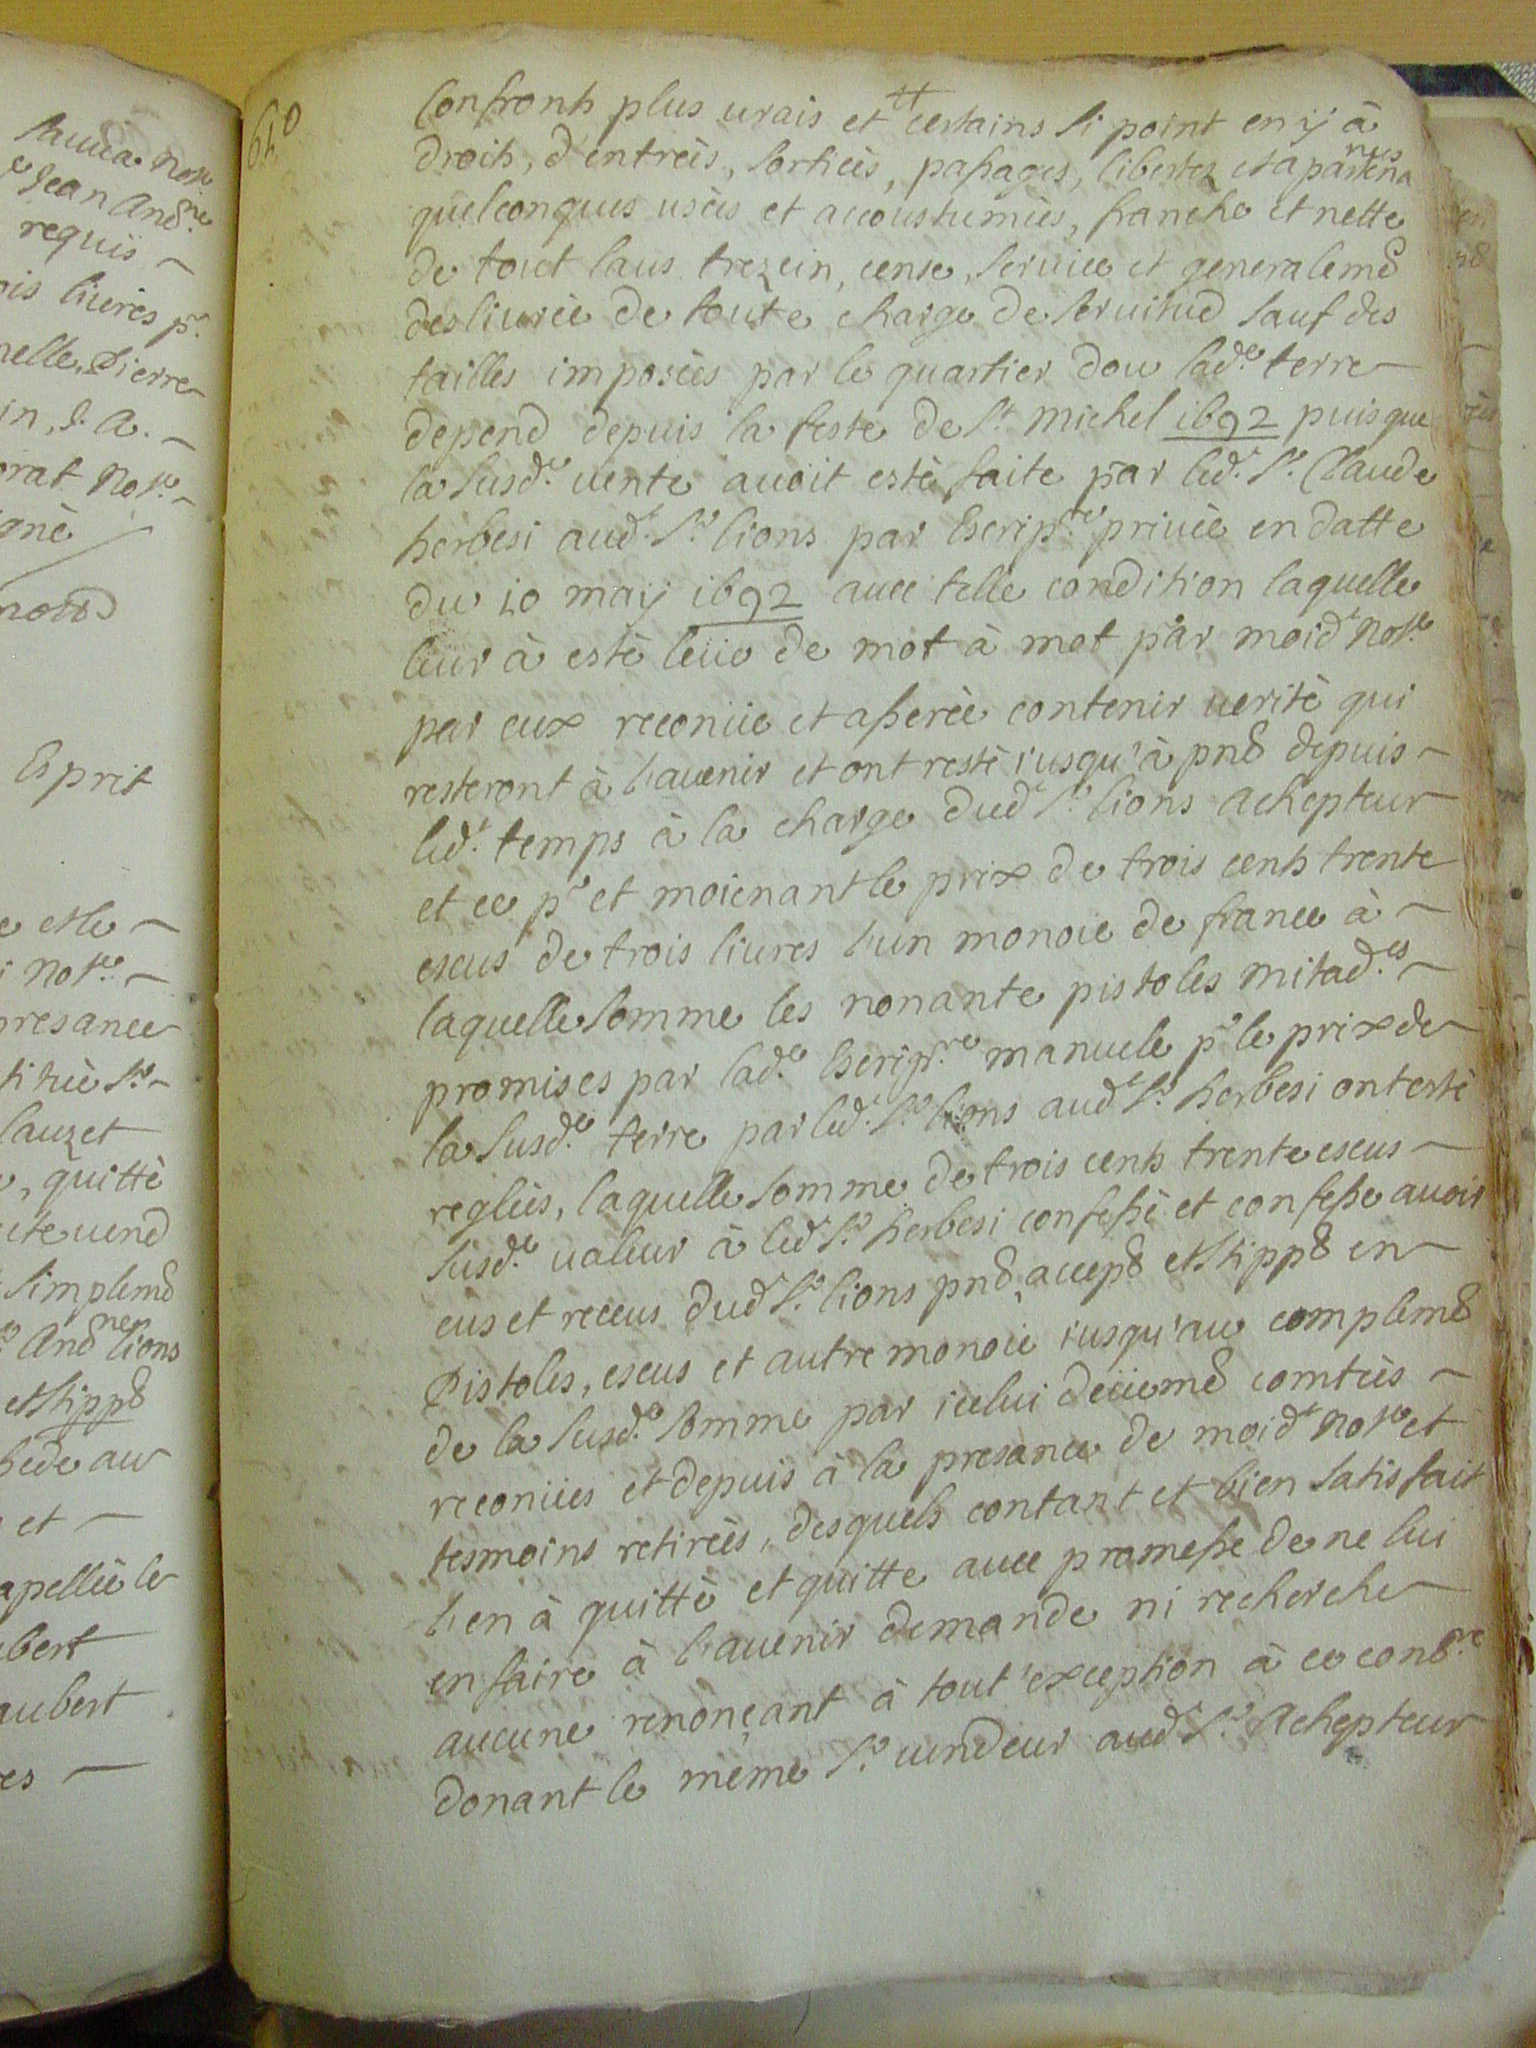 Sauua not.e
e Jean And.ne
requis
ois liures p.r
nelle, Pierre
in, J. A.
orat not.e
igné
notd
Esprit
e et le
i not.e
presance
titüé S.r
lauzet
e, quitté
ite uend
simplemt
And.ne lions
et stippt
bede au
et
apellée le
bert
aubert
es
610
Confronts plus urais et tt certains si point en ij à
droits, d'entreès, sortieès, passages, libertez et apartenances
quelconques useès et accoustumeès, franche et nette
de tout laus trezein, cense, seruice et generalemt
desliurèe de toute charge de seruitud sauf des
tailles imposeès par le quartier dou lad.e terre
depend depuis la feste de S.t michel 1692 puis que
la susd.e uente auoit esté faite par led.t S.r Claude
herbesi aud.t S.r lions par Escrip.re priueè en datte
du 10 maij 1692 auec telle condition laquelle
leur à esté leüe de mot à mot par moid.t not.e
par eux reconüe et asserèe contenir uerité qui
resteront à l'auenir et ont resté iusqu'à pnt depuis
led.t temps à la charge dud.t S.r lions achepteur
et ce p.r et moienant le prix de trois cents trente
escus de trois liures l'un monoie de france à
laquelle somme les nonante pistoles mitad.es
promises par lad.e Escrip.re manuele p.r le prix de
la susd.e terre par led.t S.r lions aud.t S.r herbesi ont esté
regleès, laquelle somme de trois cents trente escus
susd.e ualeur à led.t S.r herbesi confessé et confesse auoir
eus et receus dud.t S.r lions pnt, accept et stippt en
Pistoles, escus et autre monoie iusqu'au complemt
de la susd.e somme par icelui deüemt comteès
reconües et depuis à la presance de moid.t not.e et
tesmoins retireès, desquels contant et bien satisfait
l'en à quitté et quitte auec promesse de ne lui
en faire à l'auenir demande ni recherche
aucune renonçant à tout'exception à ce cont.re
donant le même S.r uendeur aud.t S.r achepteur